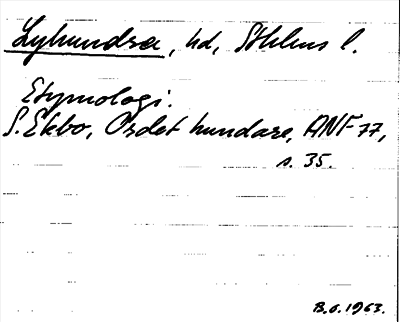 Lyhundra, hd, Sthlms l.
Etymologi.
S. Ekbo, Ordet hundare, ANF 77,
s. 35.
B.6.1963.